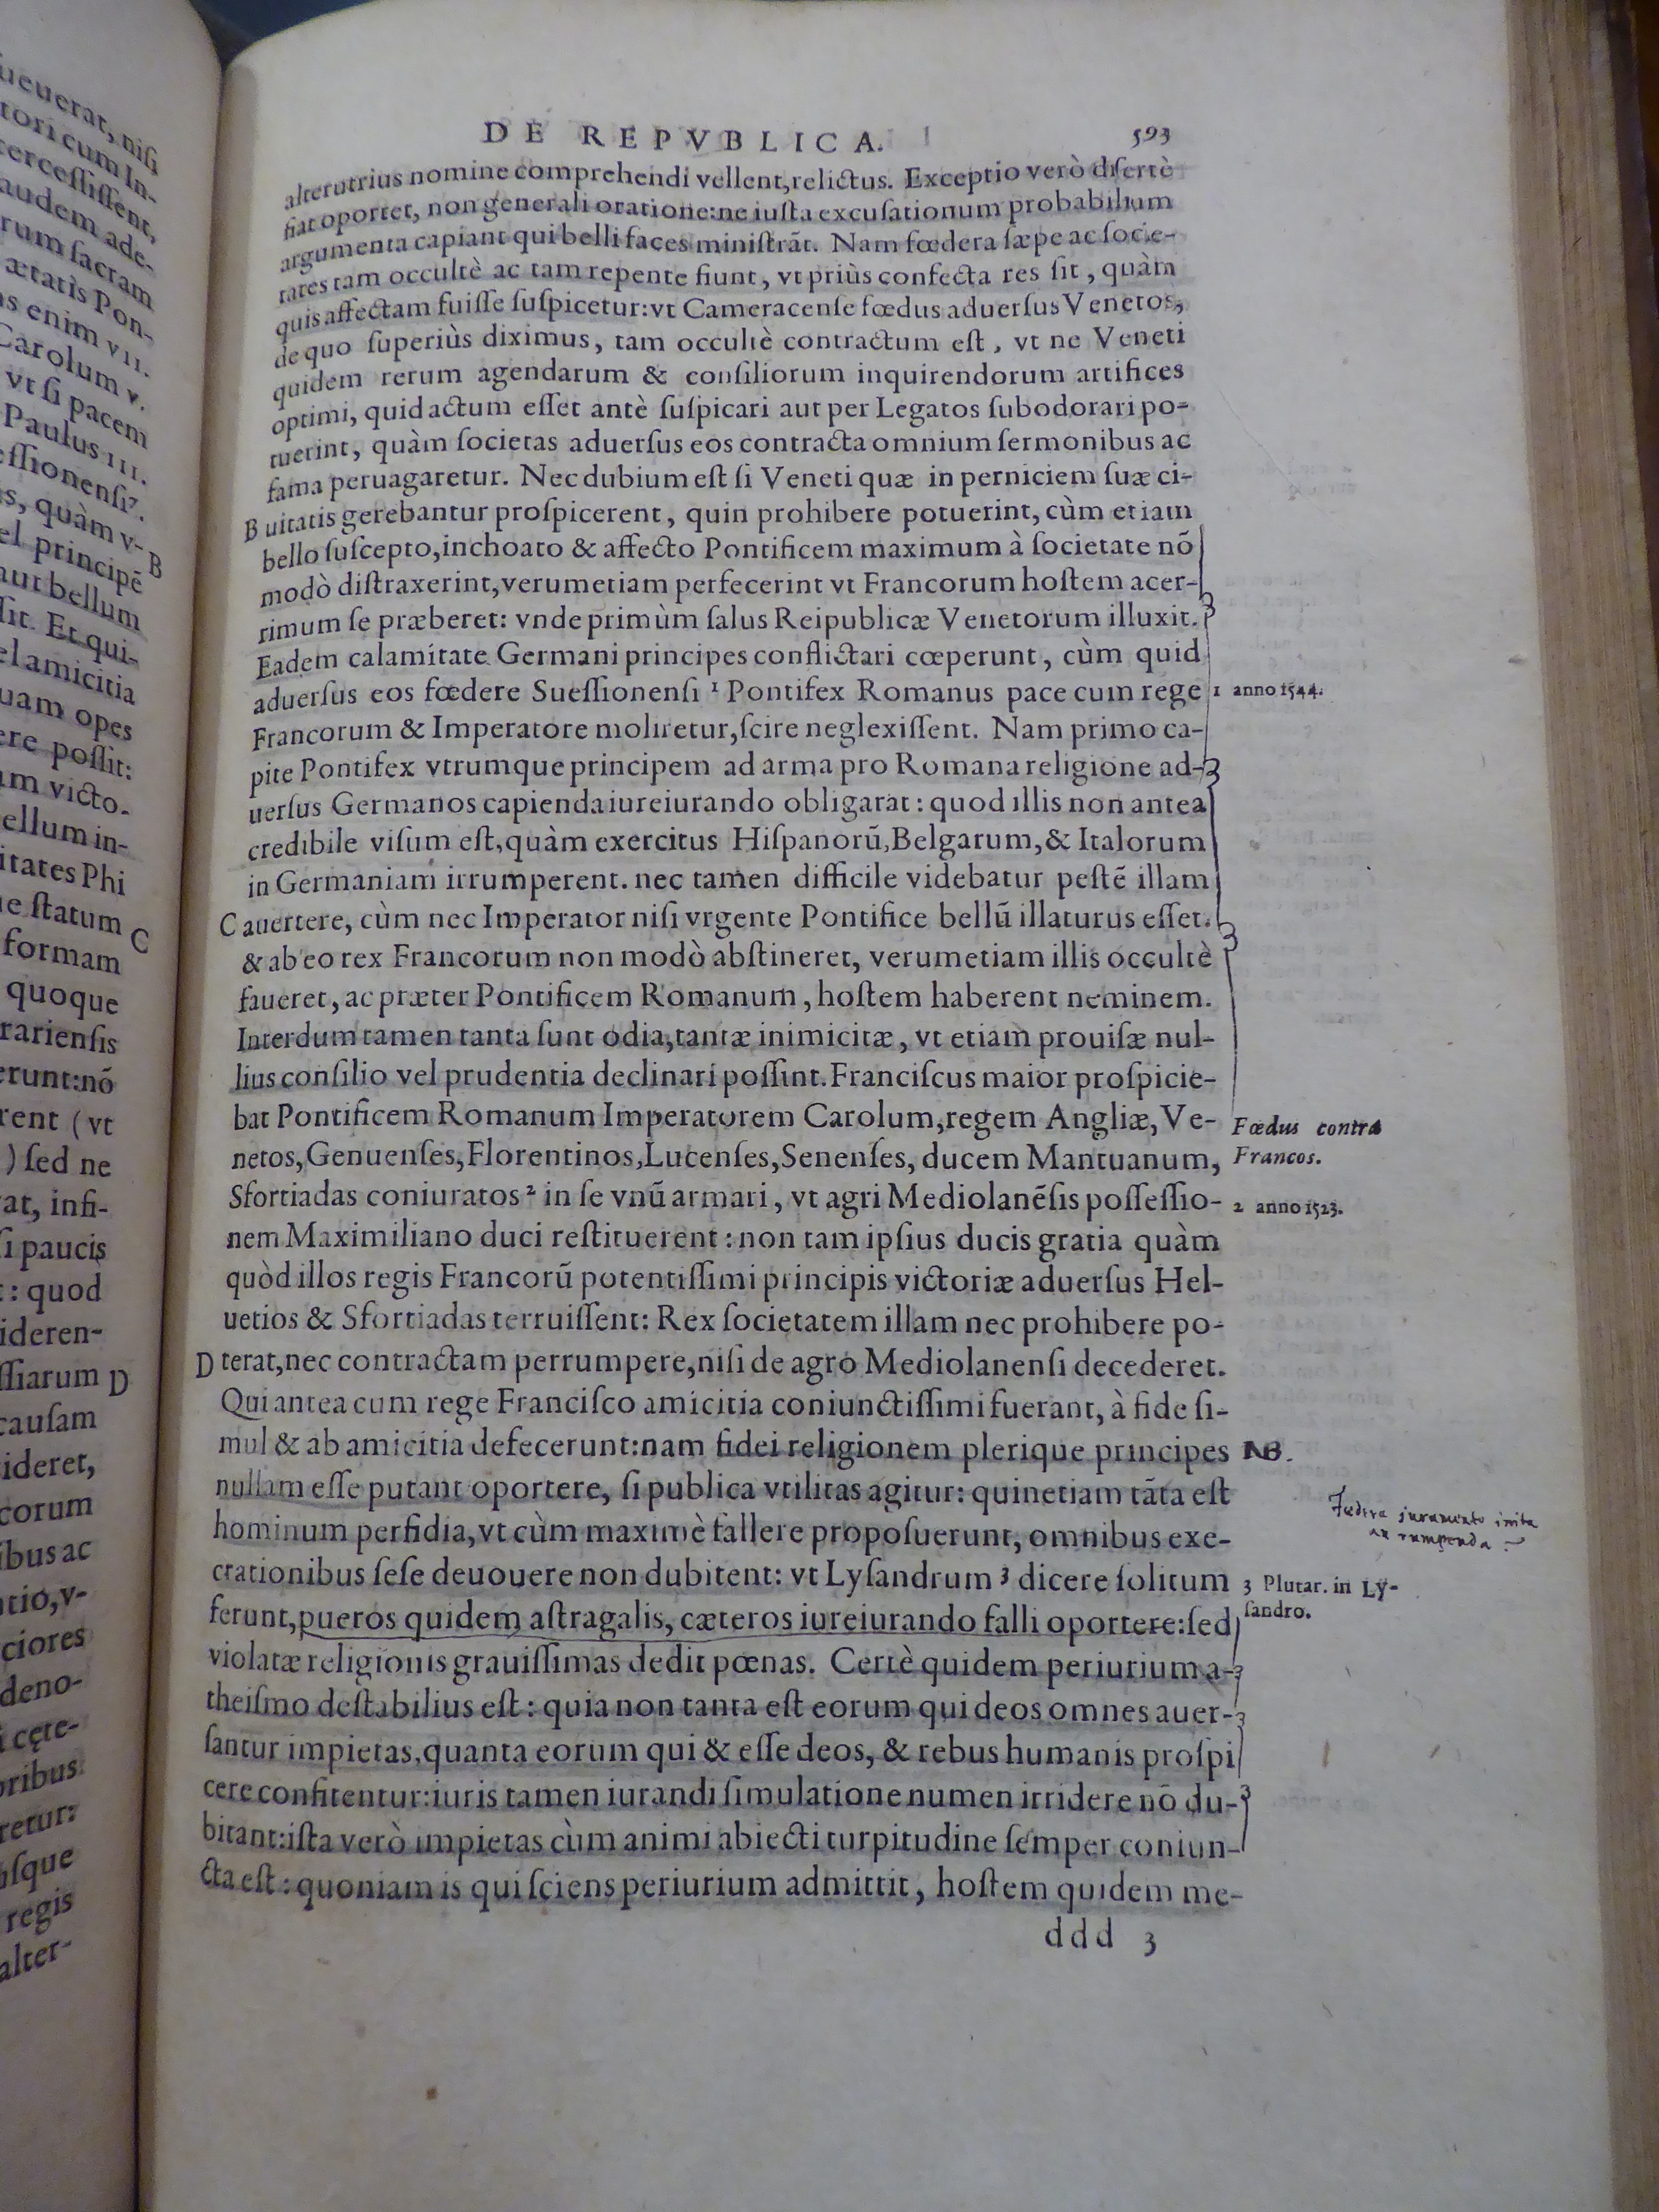 ueuerat, nisi
tori cum In-
tercessissent,
audem ade-
rum sacram
ætatis Pon-
as enim VII.
Carolum V.
vt si pacem
Paulus III.
s, quàm v-
el principē
aut bellum
sit. Et qui-
el amicitia
uam opes
ere possit:
am victo-
ellum in-
itates Phi
e statum
formam
quoque
rariensis
erunt:nō
rent ( vt
) sed ne
at, infi-
si paucis
: quod
ideren-
ssiarum
causam
ideret,
corum
ibus ac
tio, v-
ciores
deno-
i cęte-
oribus
retur:
sque
regis
alter-
B
C
D
DE REPVBLICA. 593
alterutrius nomine comprehendi vellent, relictus. Exceptio verò disertè
fiat oportet, non generali oratione: ne iusta excusationum probabilium
argumenta capiant qui belli faces ministrāt. Nam fœdera sæpe ac socie-
tates tam occultè ac tam repente fiunt, vt priùs confecta res sit, quàm
quis affectam fuisse suspicetur: vt Cameracense fœdus aduersus Venetos,
de quo superiùs diximus, tam occultè contractum est, vt ne Veneti
quidem rerum agendarum & consiliorum inquirendorum artifices
optimi, quid actum esset antè suspicari aut per Legatos subodorari po-
tuerint, quàm societas aduersus eos contracta omnium sermonibus ac
fama peruagaretur. Nec dubium est si Veneti quæ in perniciem suæ ci-
B uitatis gerebantur prospicerent, quin prohibere potuerint, cùm etiam
bello suscepto, inchoato & affecto Pontificem maximum à societate nō
modò distraxerint, verumetiam perfecerint vt Francorum hostem acer-
rimum se præberet: vnde primùm salus Reipublicæ Venetorum illuxit.
Eadem calamitate Germani principes conflictari cœperunt, cùm quid
aduersus eos fœdere Suessionensi 1 Pontifex Romanus pace cum rege
1 anno 1544.
Francorum & Imperatore moliretur, scire neglexissent. Nam primo ca-
pite Pontifex vtrumque principem ad arma pro Romana religione ad-
uersus Germanos capienda iureiurando obligarat: quod illis non antea
credibile visum est, quàm exercitus Hispanorū, Belgarum, & Italorum
in Germaniam irrumperent. nec tamen difficile videbatur pestē illam
C auertere, cùm nec Imperator nisi vrgente Pontifice bellū illaturus esset.
& ab eo rex Francorum non modò abstineret, verumetiam illis occultè
faueret, ac præter Pontificem Romanum, hostem haberent neminem.
Interdum tamen tanta sunt odia, tantæ inimicitæ, vt etiam prouisæ nul-
lius consilio vel prudentia declinari possint. Franciscus maior prospicie-
bat Pontificem Romanum Imperatorem Carolum, regem Angliæ, Ve-
netos, Genuenses, Florentinos, Lucenses, Senenses, ducem Mantuanum,
Fœdus contra
Francos.
Sfortiadas coniuratos 2 in se vnū armari, vt agri Mediolanēsis possessio-
2 anno 1523.
nem Maximiliano duci restituerent: non tam ipsius ducis gratia quàm
quòd illos regis Francorū potentissimi principis victoriæ aduersus Hel-
uetios & Sfortiadas terruissent: Rex societatem illam nec prohibere po-
D terat, nec contractam perrumpere, nisi de agro Mediolanensi decederet.
Qui antea cum rege Francisco amicitia coniunctissimi fuerant, à fide si-
mul & ab amicitia defecerunt: nam fidei religionem plerique principes
NB.
nullam esse putant oportere, si publica vtilitas agitur: quinetiam tāta est
hominum perfidia, vt cùm maximè fallere proposuerunt, omnibus exe-
Fœdera juramento inita
an rumpenda?
crationibus sese deuouere non dubitent: vt Lysandrum 3 dicere solitum
3 Plutar. in Ly-
sandro.
ferunt, pueros quidem astragalis, cæteros iureiurando falli oportere: sed
violatæ religionis grauissimas dedit pœnas. Certè quidem periurium a-
theismo destabilius est: quia non tanta est eorum qui deos omnes auer-
santur impietas, quanta eorum qui & esse deos, & rebus humanis prospi
cere confitentur: iuris tamen iurandi simulatione numen irridere nō du-
bitant: ista verò impietas cùm animi abiecti turpitudine semper coniun-
cta est: quoniam is qui sciens periurium admittit, hostem quidem me-
ddd 3